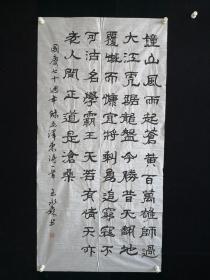 鐘山風雨起蒼黃百萬雄師過
大江虎踞龍盤今勝昔天翻地
覆慨而慷宜將剩勇追窮寇不
可沽名學霸王天若有情天亦
老人間正道是滄桑
國慶七十週年 錄毛澤東詩一首 王永書